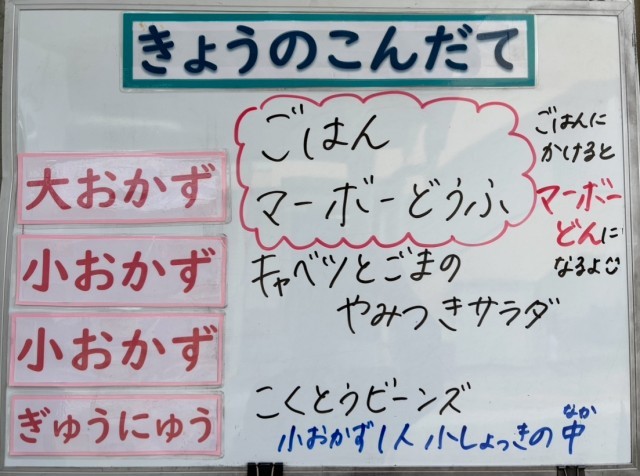 きょうのこんだて
ごはん
大おかず
マーボーどうふ
ごはんに
かけると
マーボー
どんに
なるよ☺
小おかず
キャベツとごまの
やみつきサラダ
小おかず
こくとうビーンズ
ぎゅうにゅう
小おかず1人 小しょっきの中
なか